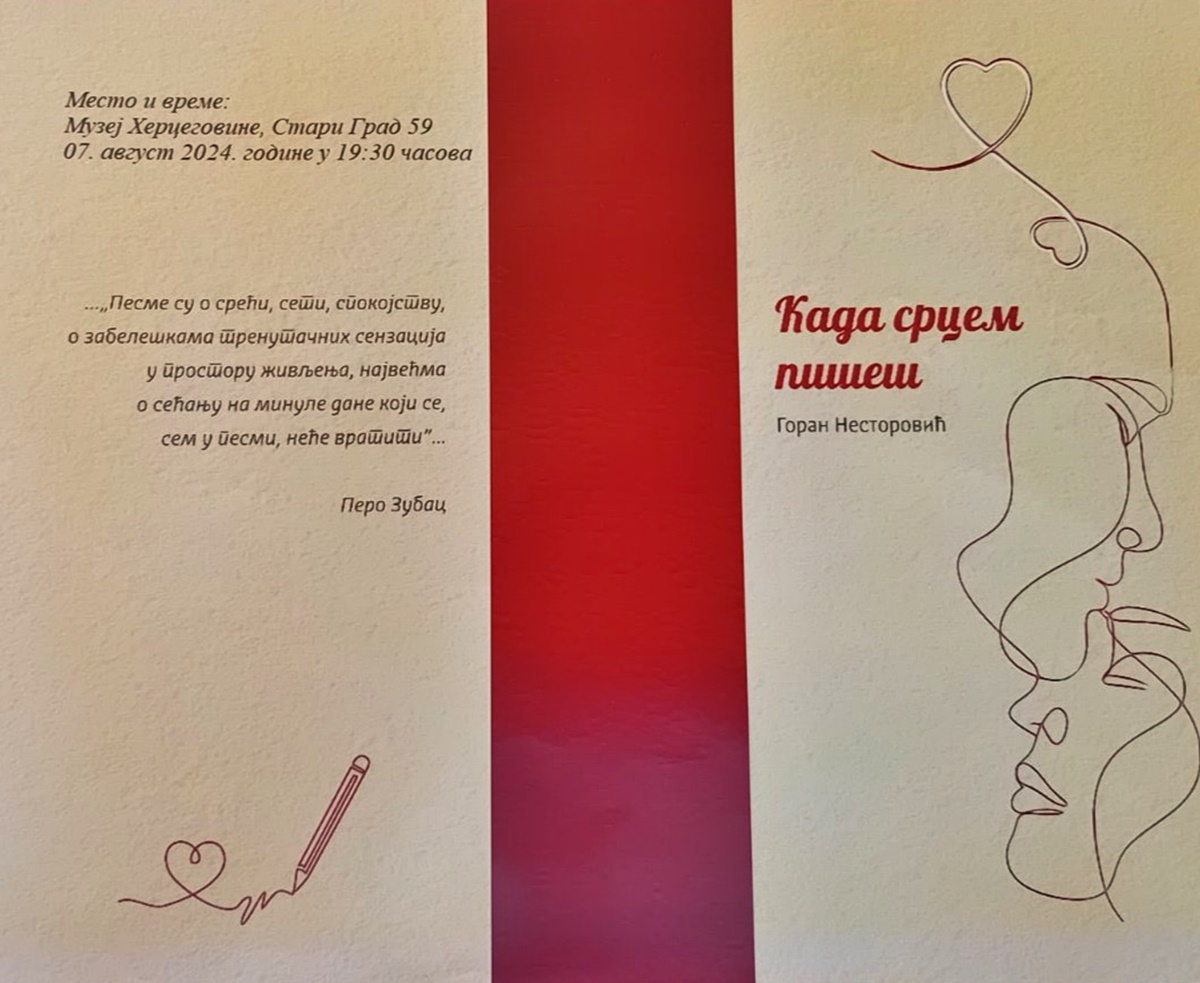 Место и време:
Музеј Херцеговине, Стари Град 59
07. август 2024. године у 19:30 часова
...„Песме су о срећи, сети, спокојству,
о забелешкама тренутачних сензација
у простору живљења, највећма
о сећању на минуле дане који се,
сем у песми, неће вратити”...
Перо Зубац
Када срцем
пишеш
Горан Несторовић